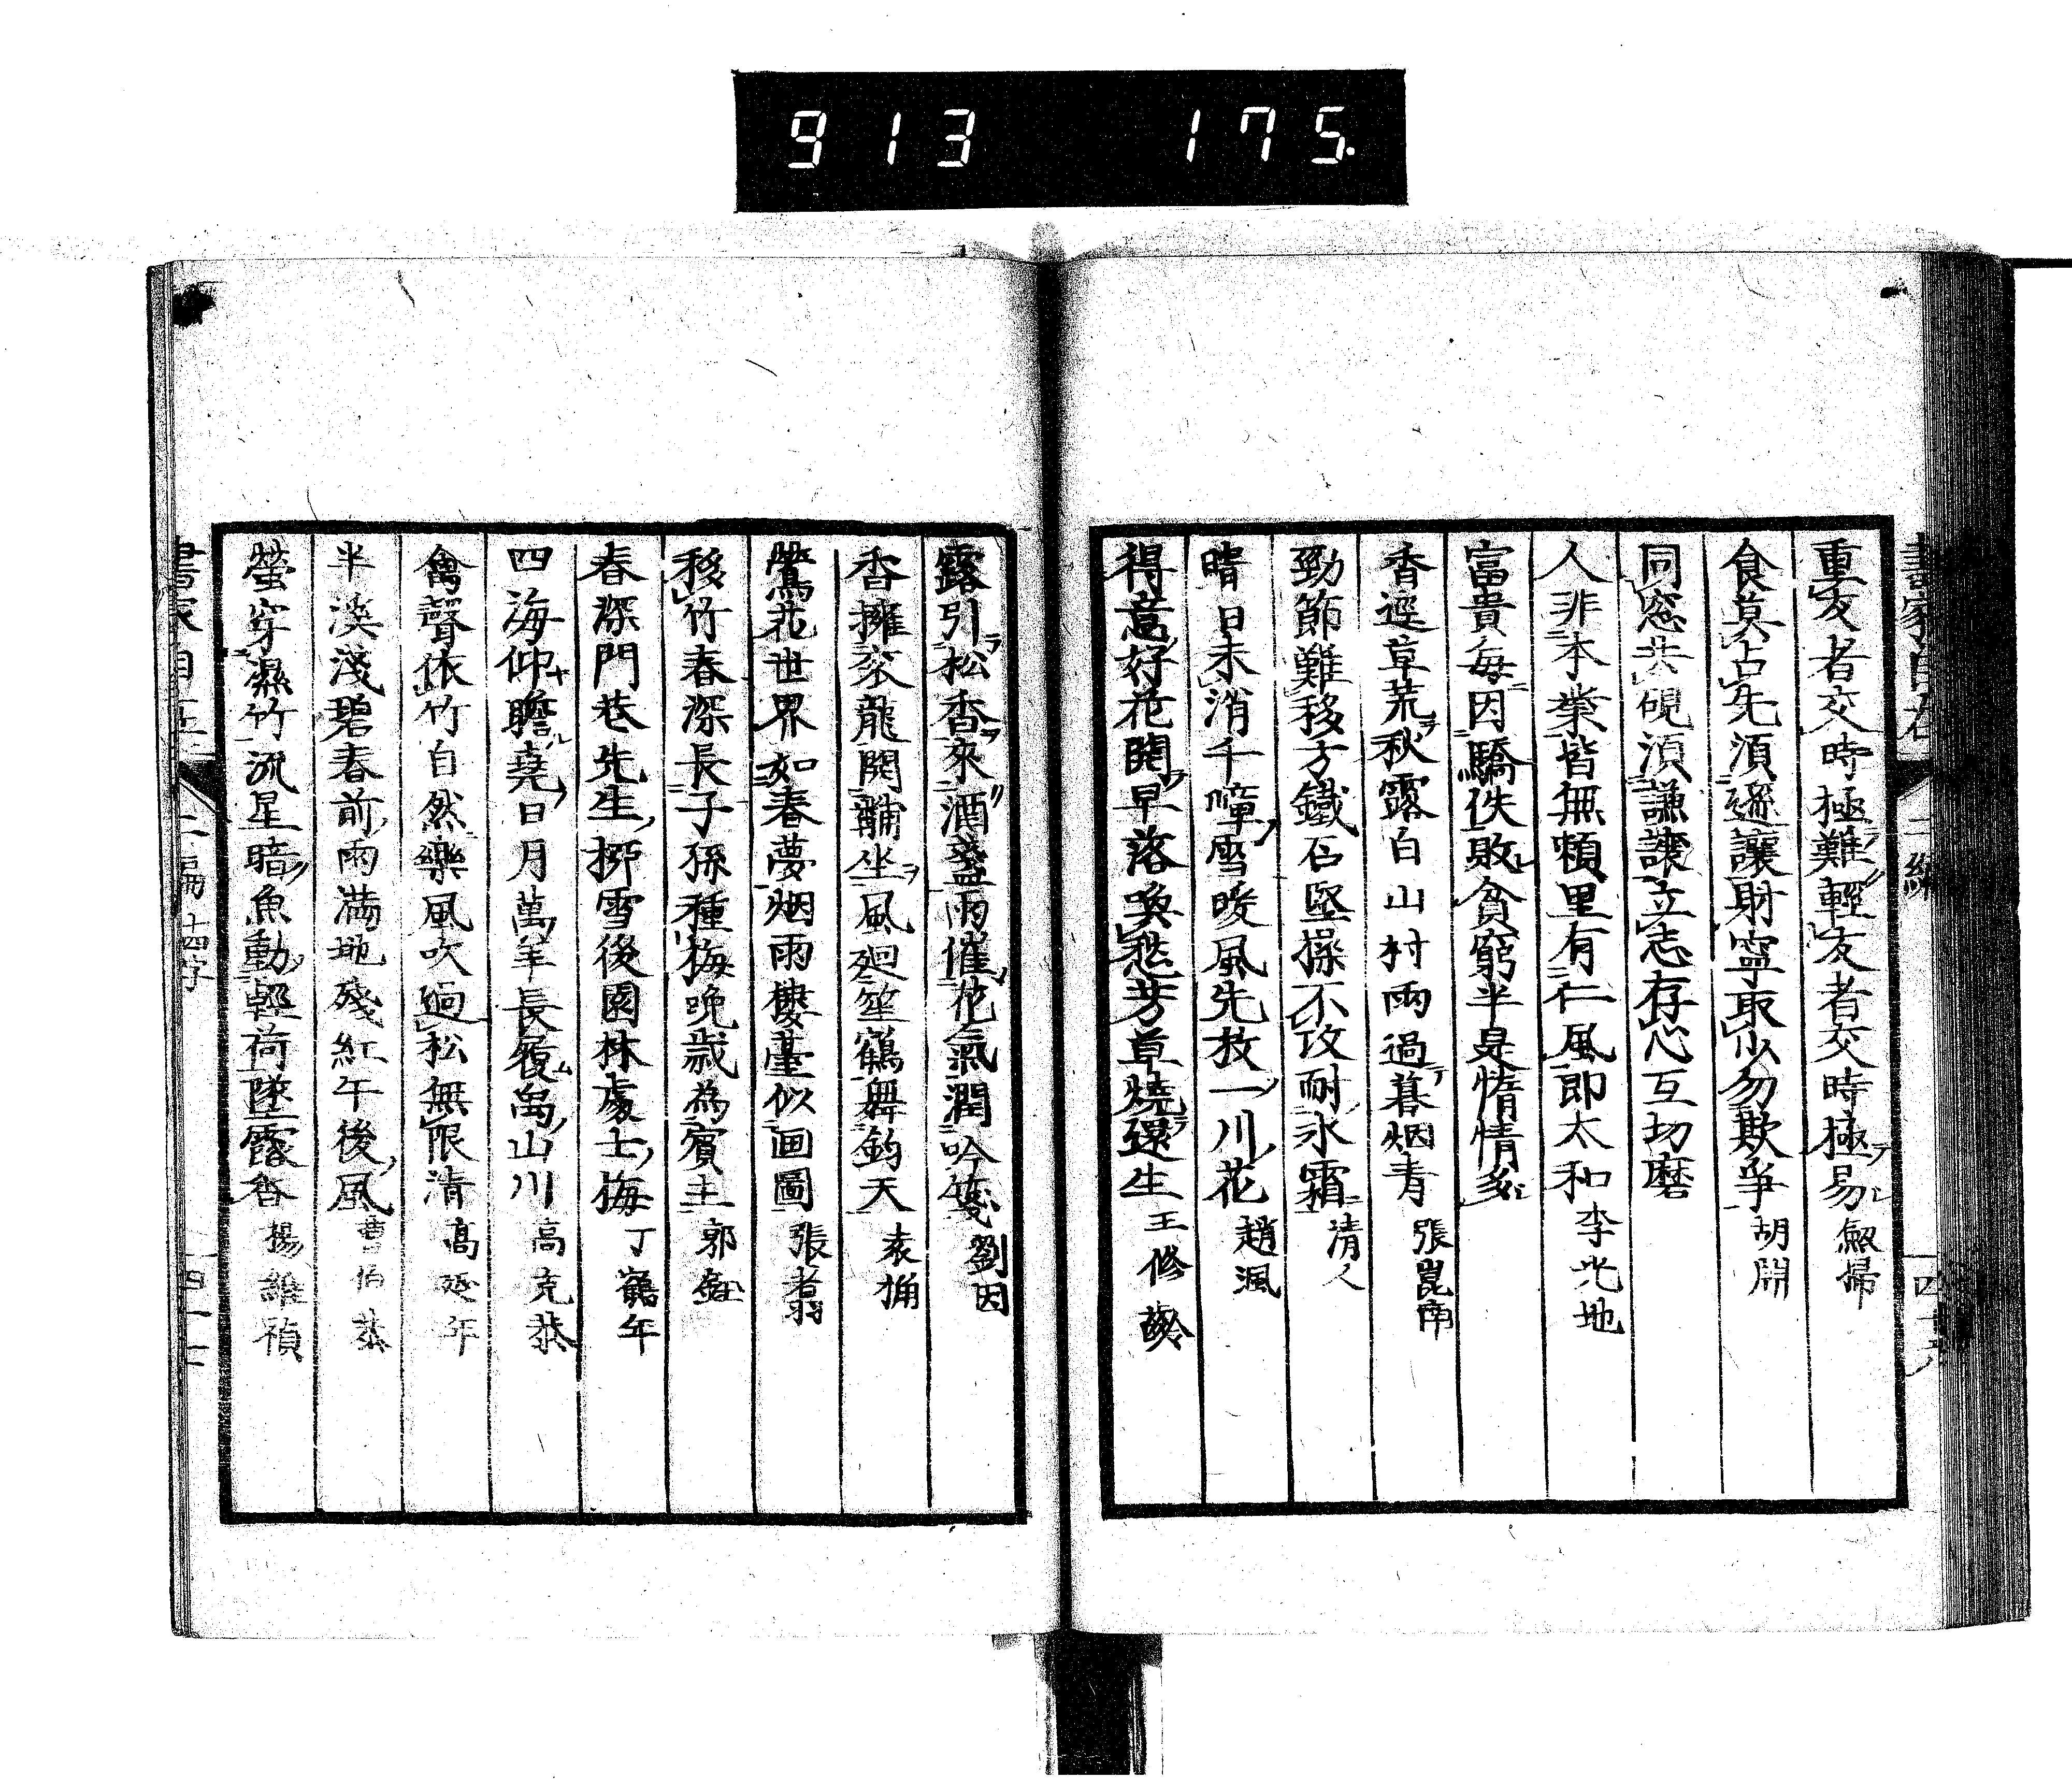 913 175.
書家自在 二編
重友者交時極難輕友者交時極易 劍掃
食莫占先須遜讓財寧取少勿欺爭 胡開
同窓共硯須謙讓立志存心互切磨
人非本業皆無賴里有仁風即太和 李光地
富貴每因驕佚敗貧窮半是惰情多
香逕草荒秋露白山村雨過暮烟青 張崑南
勁節難移方鐵石堅操不改耐氷霜 清人
晴日未消千嶂雪暖風先放一川花 趙渢
得意好花開早落喚愁芳草燒還生 王修齡
露引松香來酒盞雨催花氣潤吟箋 劉因
香擁衮龍開黼坐風廻笙鶴舞鈞天 袁桷
鶯花世界如春夢烟雨樓臺似画圖 張翥
移竹春深長子孫種梅晚歲為賓主 郭鈺
春深門巷先生柳雪後園林處士梅 丁鶴年
四海仰瞻堯日月萬年長履禹山川 高克恭
禽聲依竹自然樂風吹過松無限清 高延年
半溪淺碧春前雨滿地殘紅午後風 曹伯恭
螢穿濕竹流星暗魚動輕荷墜露香 楊維禎
書家自在 二編 十四字